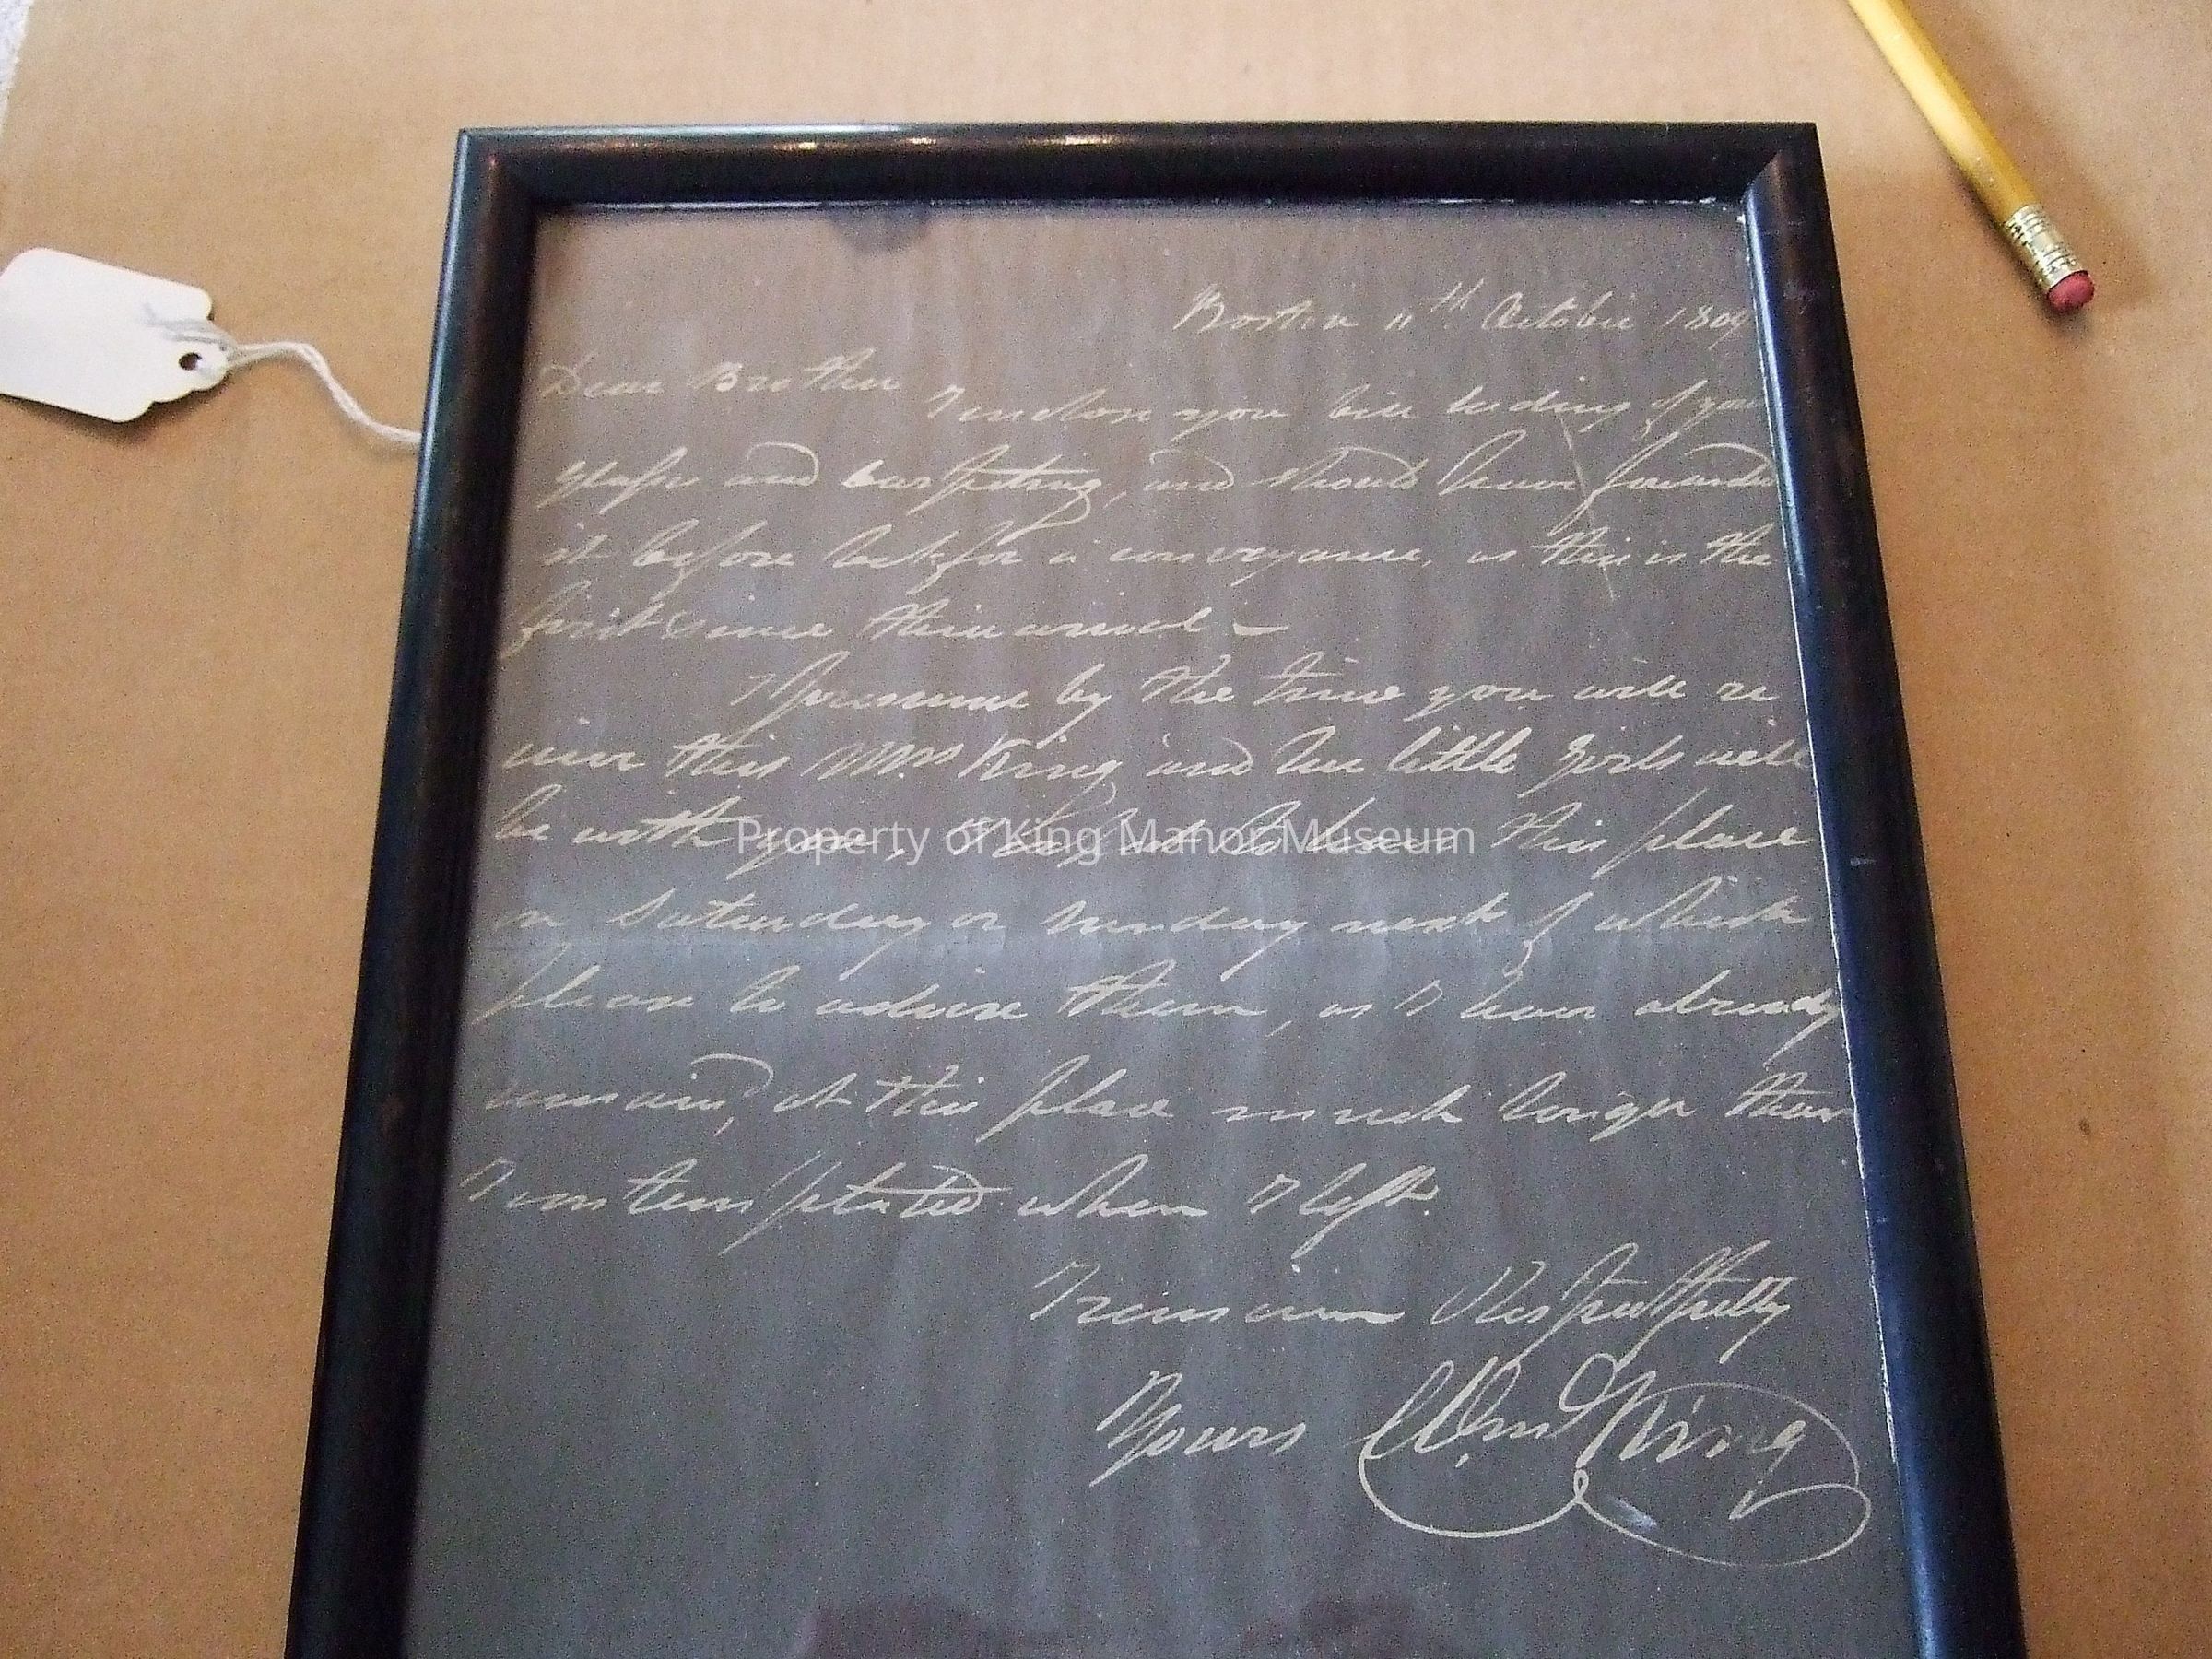 Boston 11th October 1804
Dear Brother
I enclose you bill lading of your
glass and carpeting, and should have forwarded
it before but for a conveyance, as this is the
first since their arrival –
I presume by the time you will re
ceive this Mrs King and her little girls will
be with you, I hope to leave this place
on Saturday or Sunday next of which
please to advise them, as I have already
remaind, at this place much longer than
I contemplated when I left.
I remain Respectfully
Yours Wm King
Property of King Manor Museum